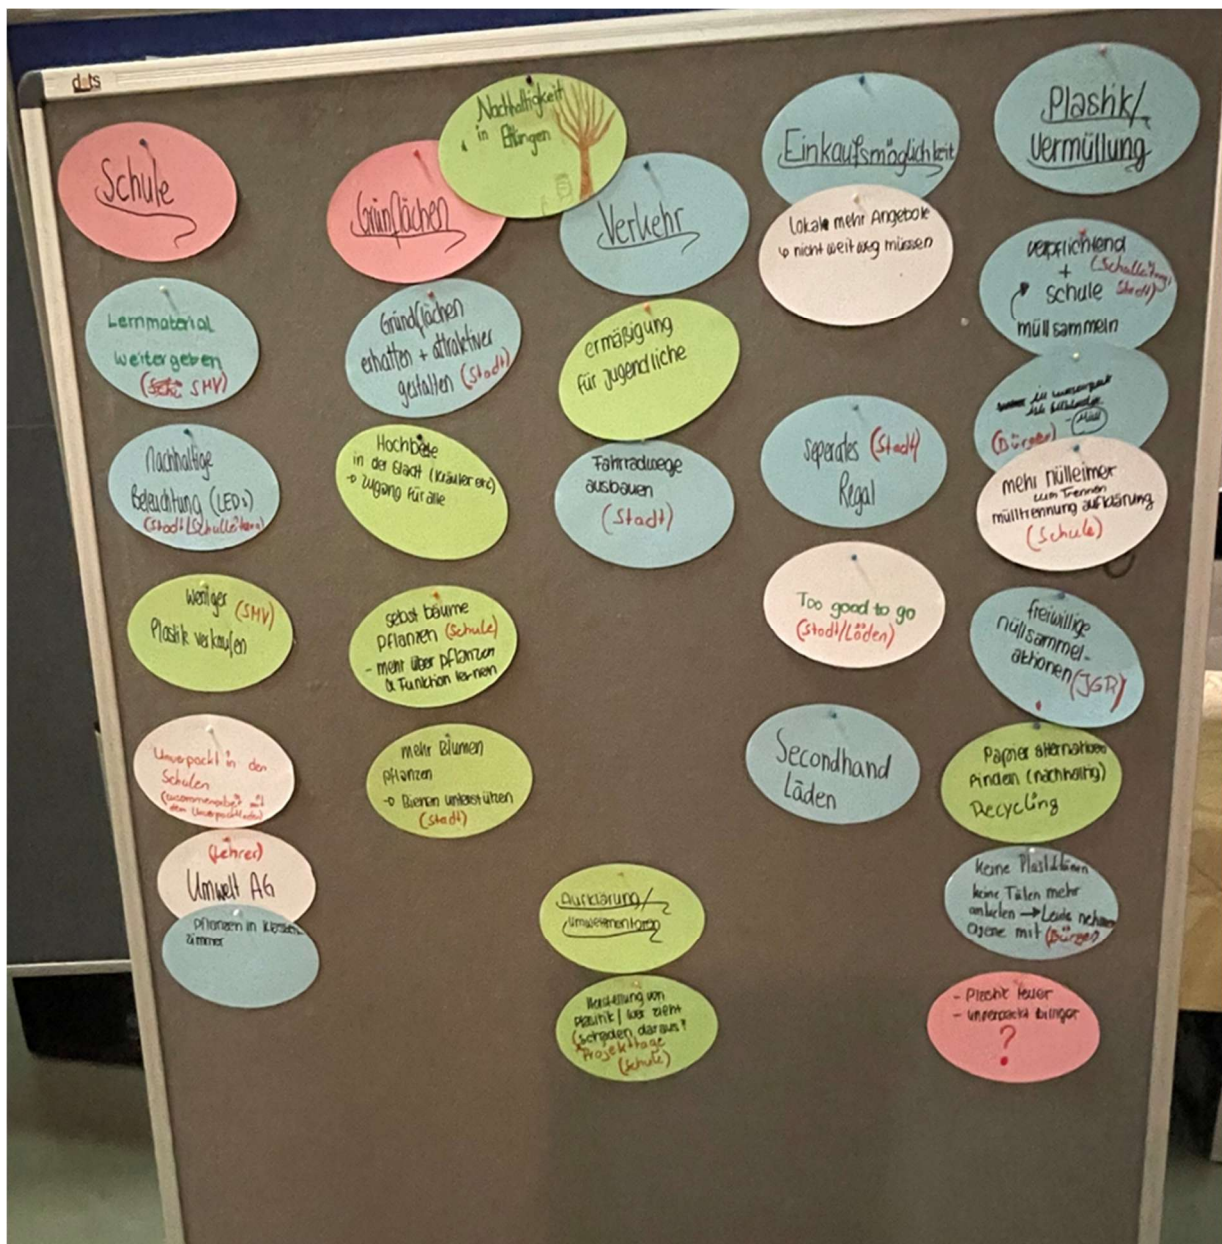 dots
Nachhaltigkeit
in Ettlingen
Schule
Lernmaterial
weitergeben
(SMV)
Nachhaltige
Beleuchtung (LEDs)
(Stadt/Schulleitung)
Weniger (SMV)
Plastik verkaufen
Unverpackt in den
Schulen
(zusammenarbeit mit
dem Unverpacktladen)
(Lehrer)
Umwelt AG
pflanzen in Klassen
zimmer
Grünflächen
Gründflächen
erhalten + attraktiver
gestalten (Stadt)
Hochbete
in der Stadt (Kräuter etc)
→ Zugang für alle
selbst bäume
pflanzen (Schule)
- mehr über pflanzen
& Funktion lernen
mehr Blumen
pflanzen
→ Bienen unterstützen
(Stadt)
Verkehr
ermäßigung
für jugendliche
Fahrradwege
ausbauen
(Stadt)
Aufklärung/
Umweltmentoren
Herstellung von
plastik/ wer zieht
schäden daraus?
Projekttage
(Schule)
Einkaufsmöglichkeit
Lokale mehr Angebote
↳ nicht weit weg müssen
seperates (Stadt)
Regal
Too good to go
(Stadt/Läden)
Secondhand
Läden
Plastik/
Vermüllung
verpflichtend
+ (Schulleitung,
schule Stadt)
müll sammeln
(Bürger) - Müll
mehr Mülleimer
zum Trennen
mülltrennung aufklärung
(Schule)
freiwillige
müllsammel-
aktionen (JGR)
Papier alternativen
finden (nachhaltig)
Recycling
keine Plastiktüten
keine Tüten mehr
anbieten → Leute nehmen
eigene mit (Bürger)
- Plastik teuer
- unverpackt billiger
?